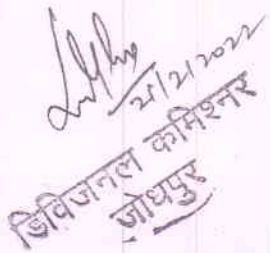 21/2/2022
डिविजनल कमिश्नर
जोधपुर